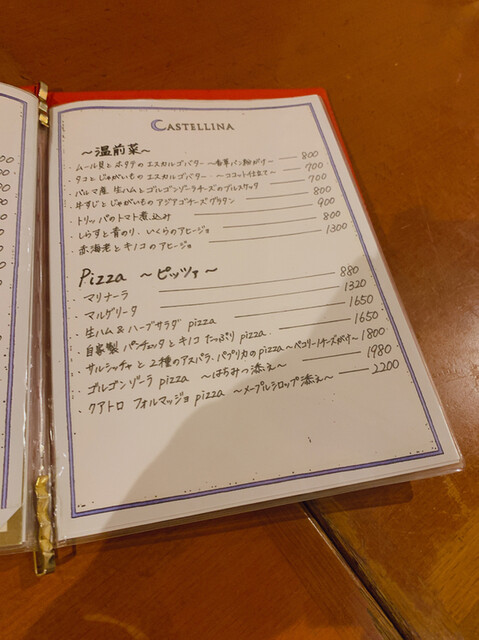 CASTELLINA
〜温前菜〜
・ムール貝とホタテのエスカルゴバター 〜香草パン粉がけ〜 800
・タコとじゃがいものエスカルゴバター 〜ココット仕立て〜 700
・パルマ産 生ハムとゴルゴンゾーラチーズのブルスケッタ 700
・牛すじとじゃがいものアジアゴチーズグラタン 800
・トリッパのトマト煮込み 900
・しらすと青のり、いくらのアヒージョ 800
・赤海老とキノコのアヒージョ 1300
Pizza 〜ピッツァ〜
・マリナーラ 880
・マルゲリータ 1320
・生ハム&ハーブサラダ pizza 1650
・自家製 パンチェッタとキノコ たっぷり pizza 1650
・サルシッチャと2種のアスパラ、パプリカのpizza 〜ペコリーノチーズがけ〜 1800
・ゴルゴンゾーラ pizza 〜はちみつ添え〜 1980
・クアトロ フォルマッジョ pizza 〜メープルシロップ添え〜 2200